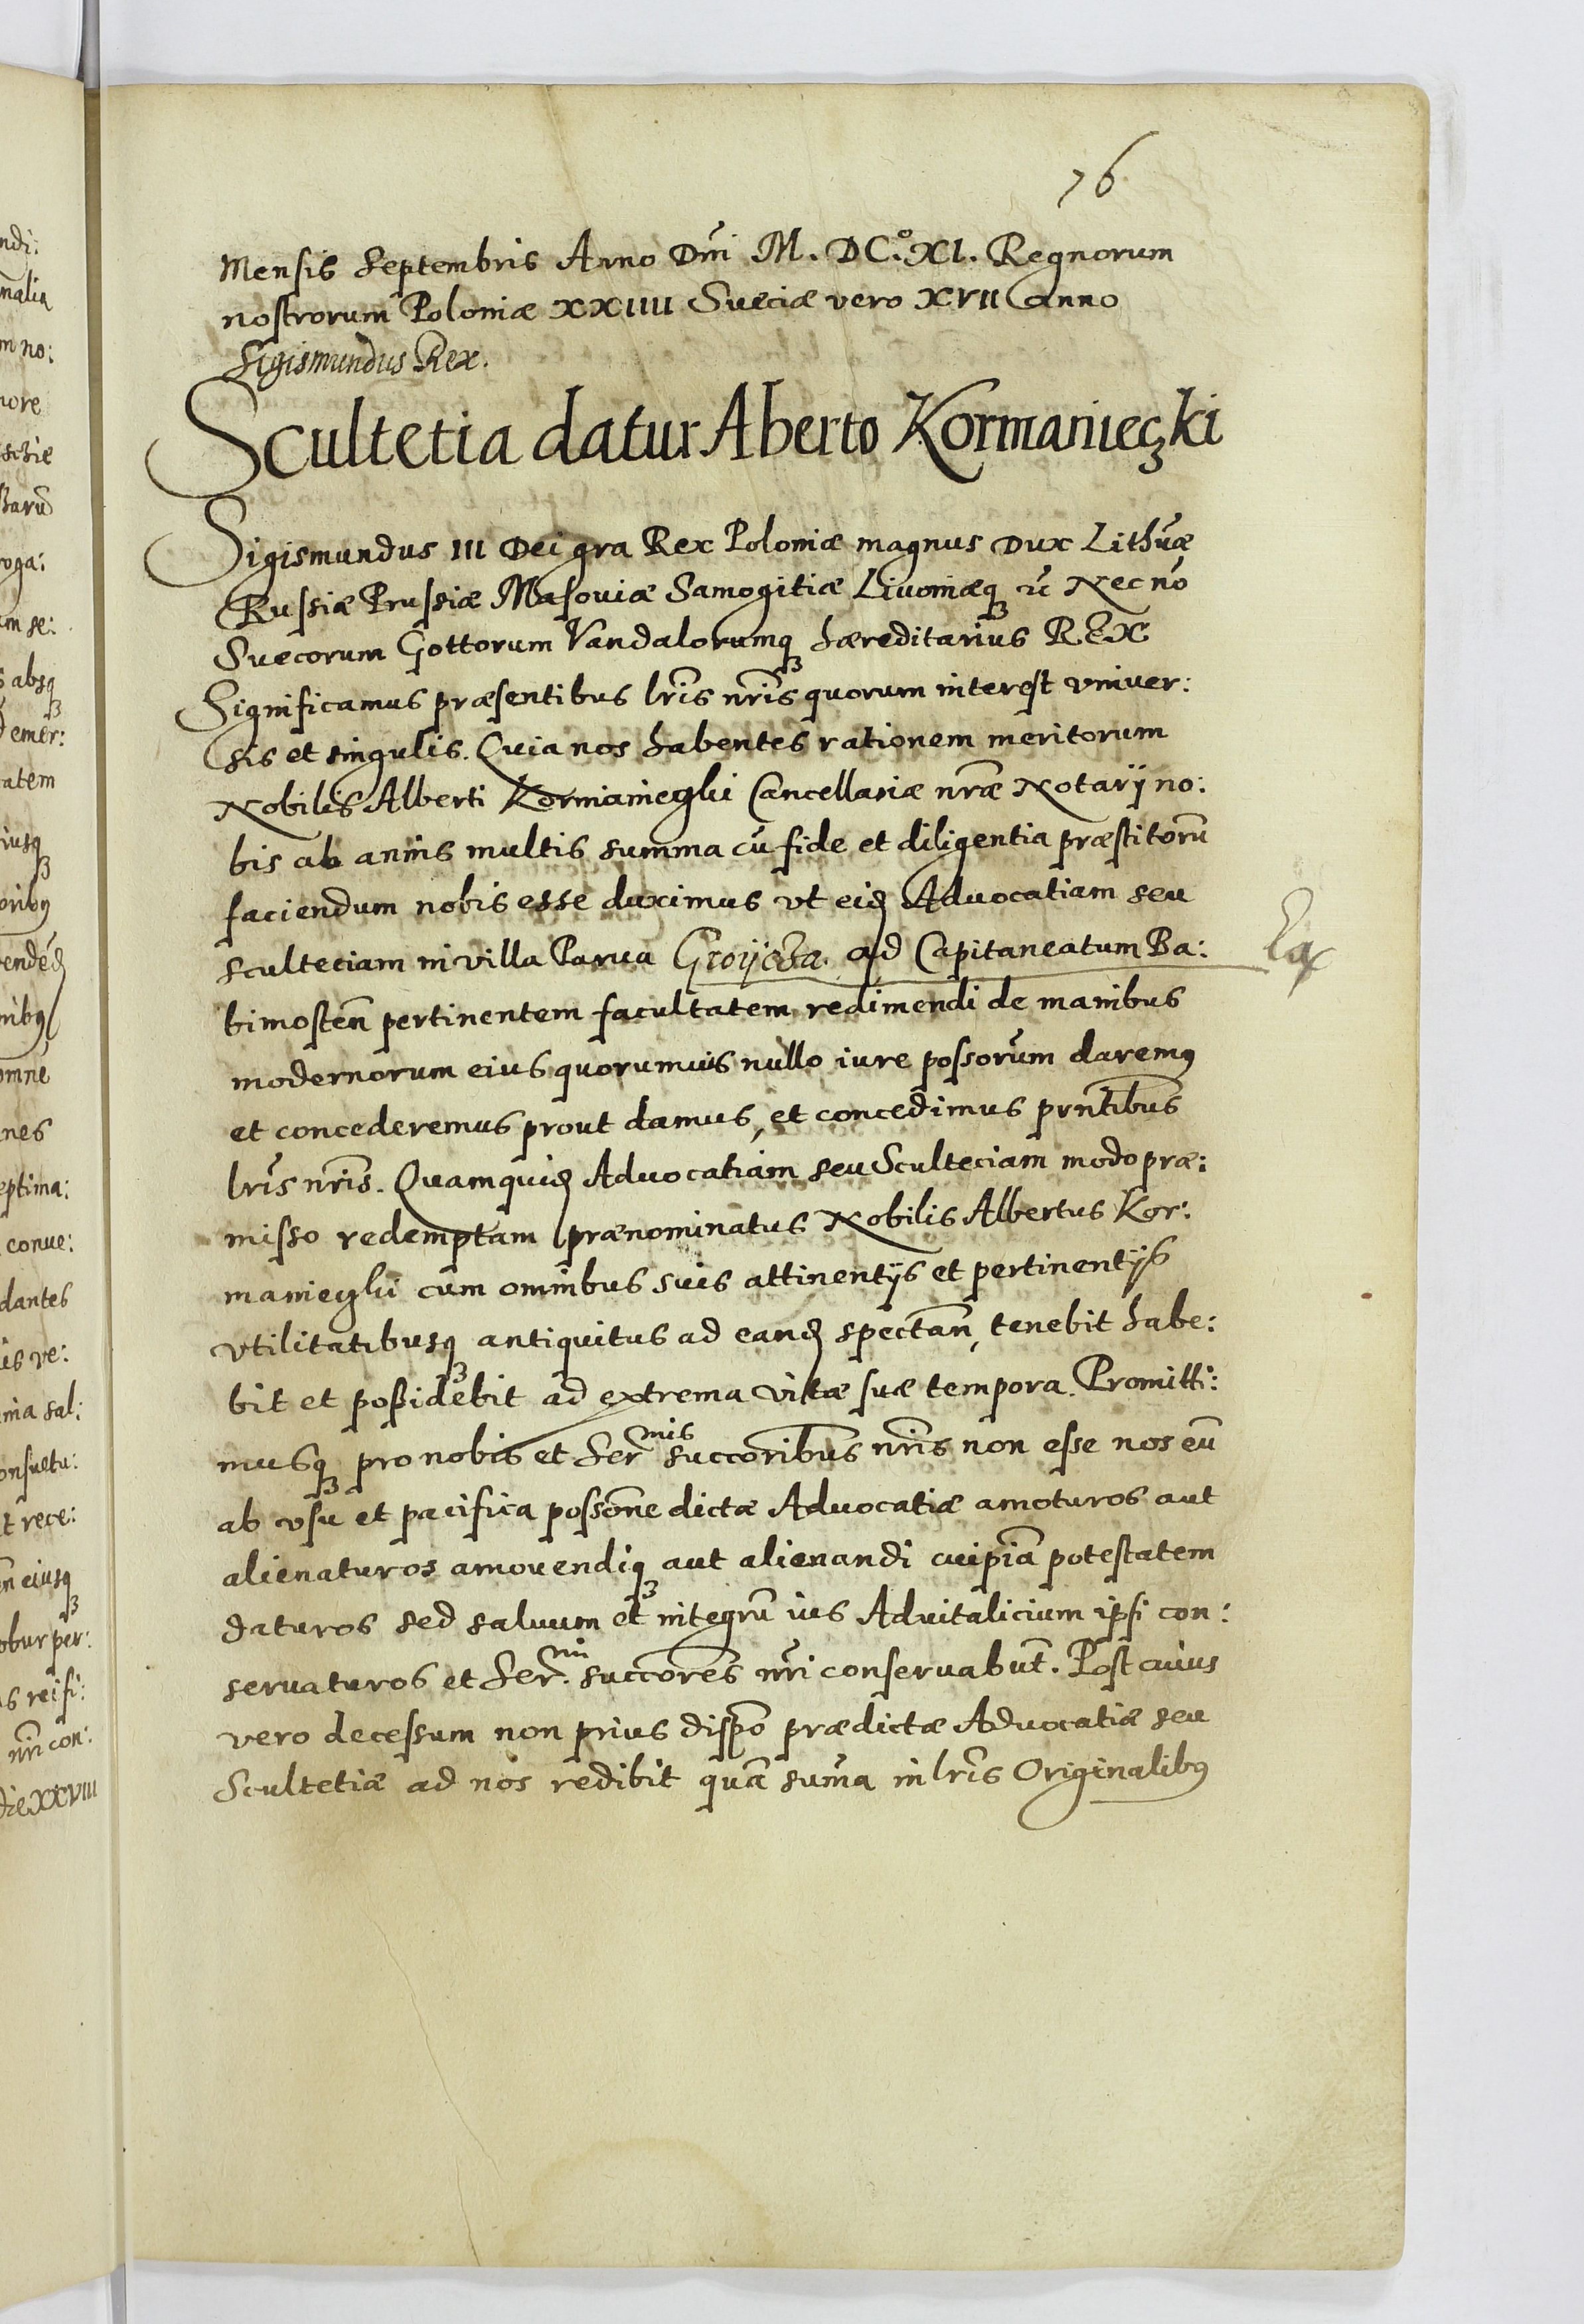 76
Mensis Septembris Anno Dni M. DC.º XI. Regnorum
nostrorum Poloniæ XXIIII Sveciæ vero XVII anno
Sigismundus Rex.
Scultetia datur Aberto Kormanieczki
Sigismundus III Dei gra Rex Poloniæ magnus Dux Lithuæ
Russiæ Prussiæ Masoviæ Samogitiæ Livoniæq Nec nō
Svecorum Gottorum Vandalorumq hæreditarius REX
Significamus præsentibus lris nris quorum interest vniver:
sis et singulis. Quia nos habentes rationem meritorum
Nobilis Alberti Kormanieczki Cancellariæ nræ Notarij no:
bis ab annis multis summa cū fide et diligentia præstitorū
faciendum nobis esse duximus vt eid Advocatiam seu
scultetiam in villa Parva Groijcka ad Capitaneatum Ba:
bimosten pertinentem facultatem redimendi de manibus
modernorum eius quorumvis nullo iure possorum daremus
et concederemus prout damus, et concedimus prntibus
lris nris. Quamquid Advocatiam seu Sculteciam modo præ:
misso redemptam prænominatus Nobilis Albertus Kor:
manieczki cum omnibus suis attinentijs et pertinentijs
vtilitatibusq antiquitus ad eand spectan, tenebit habe:
bit et poßidebit ad extrema vitæ suæ tempora. Promitti:
musq pro nobis et Ser mis succoribus nris non esse nos eū
ab vsu et pacifica possone dictæ Advocatiæ amoturos aut
alienaturos amovendiq aut alienandi cuipiā potestatem
daturos sed salvum et integrū ius Advitalicium ipsi con:
servaturos et Ser. mi succores nri conservabūt. Post cuius
vero decessum non prius dispō prædictæ Advocatiæ seu
Scultetiæ ad nos redibit quā suma in lris Originalibus